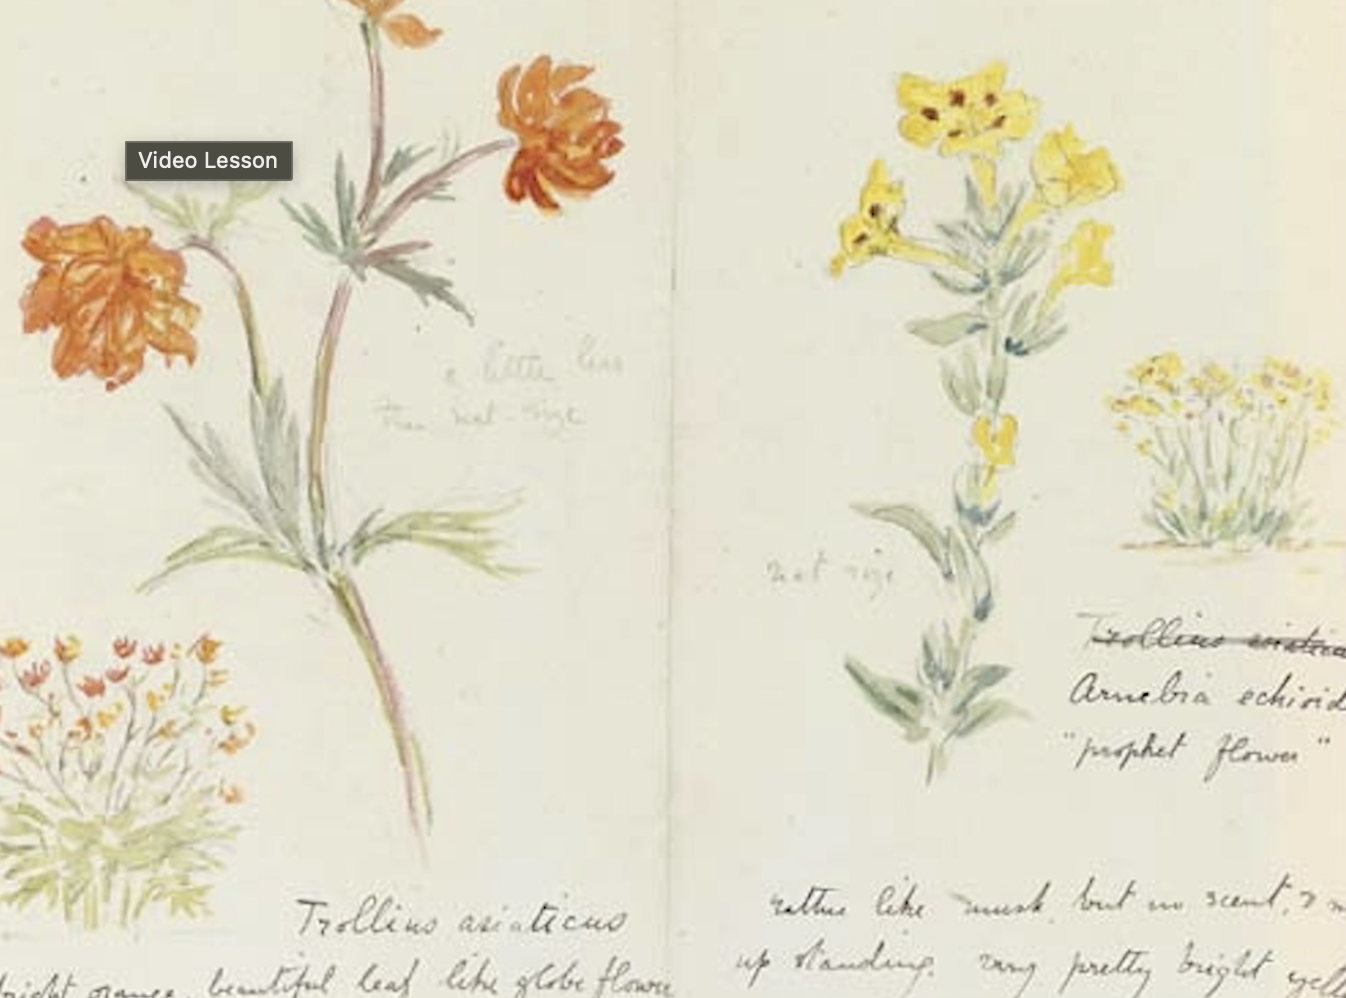 Video Lesson
a little less
than nat. size
nat size
Trollius asiaticus
Arnebia echioid
"prophet flower"
Trollius asiaticus
bright orange, beautiful leaf like globe flower
rather like musk, but no scent, & m
up standing. very pretty bright yell